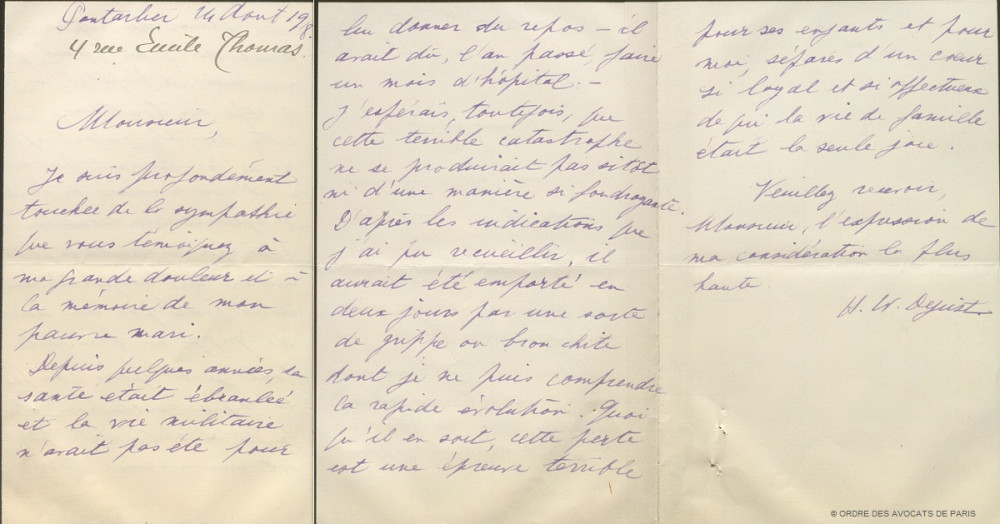 Pontarlier 14 Août 19
4 rue Emile Thomas.
Monsieur,
Je suis profondément
touchée de la sympathie
que vous témoignez à
ma grande douleur et à
la mémoire de mon
pauvre mari.
Depuis quelques années, sa
santé était ébranlée
et la vie militaire
n'avait pas été pour
lui donner du repos – il
avait dû, l'an passé faire
un mois d'hôpital. –
J'espérais, toutefois, que
cette terrible catastrophe
ne se produirait pas sitôt
ni d'une manière si foudroyante.
D'après les indications que
j'ai pu recueillir, il
aurait été emporté en
deux jours par une sorte
de grippe ou bronchite
dont je ne puis comprendre
la rapide évolution. Quoi
qu'il en soit, cette perte
est une épreuve terrible
pour ses enfants et pour
moi, séparés d'un cœur
si loyal et si affectueux
de qui la vie de famille
était la seule joie.
Veuillez recevoir,
Monsieur, l'expression de
ma considération la plus
haute.
H. W.
© ORDRE DES AVOCATS DE PARIS